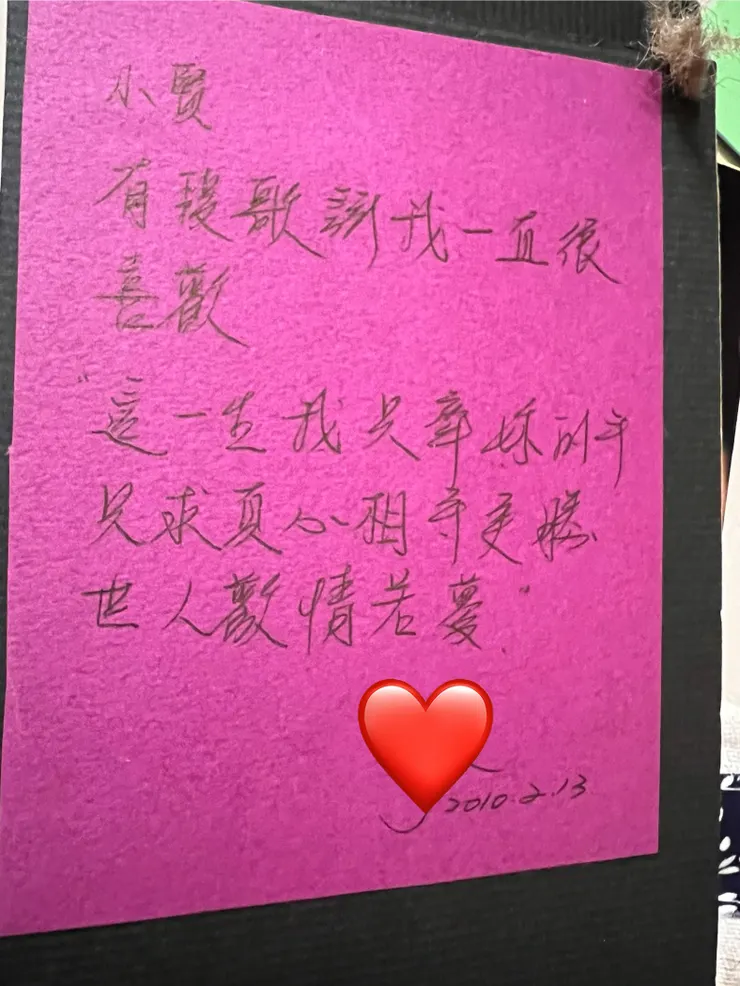 小賢
有段歌詞我一直很
喜歡
"這一生我只牽妳的手
只求真心相守更勝
世人歡情若夢"
2010.2.13